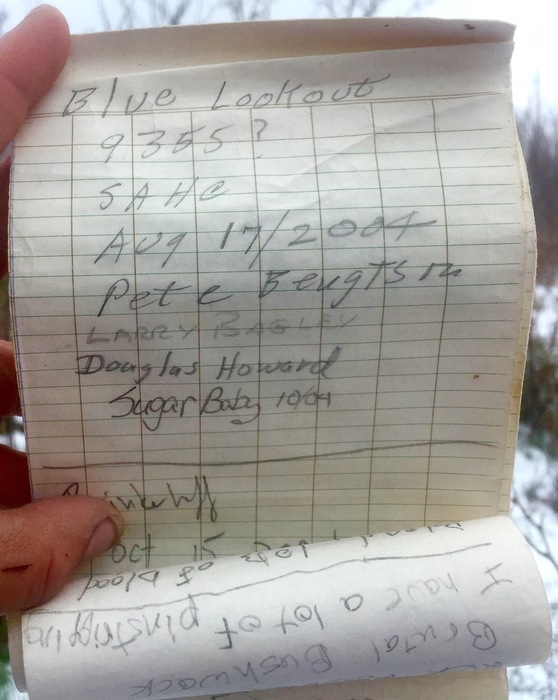 Blue Lookout
9355?
SAHC
Aug 17/2004
Pete Bengtson
LARRY BAGLEY
Douglas Howard
Sugar Baby 10/04
Oct 15
Brutal Bushwack
I have a lot of pinstriping
of blood